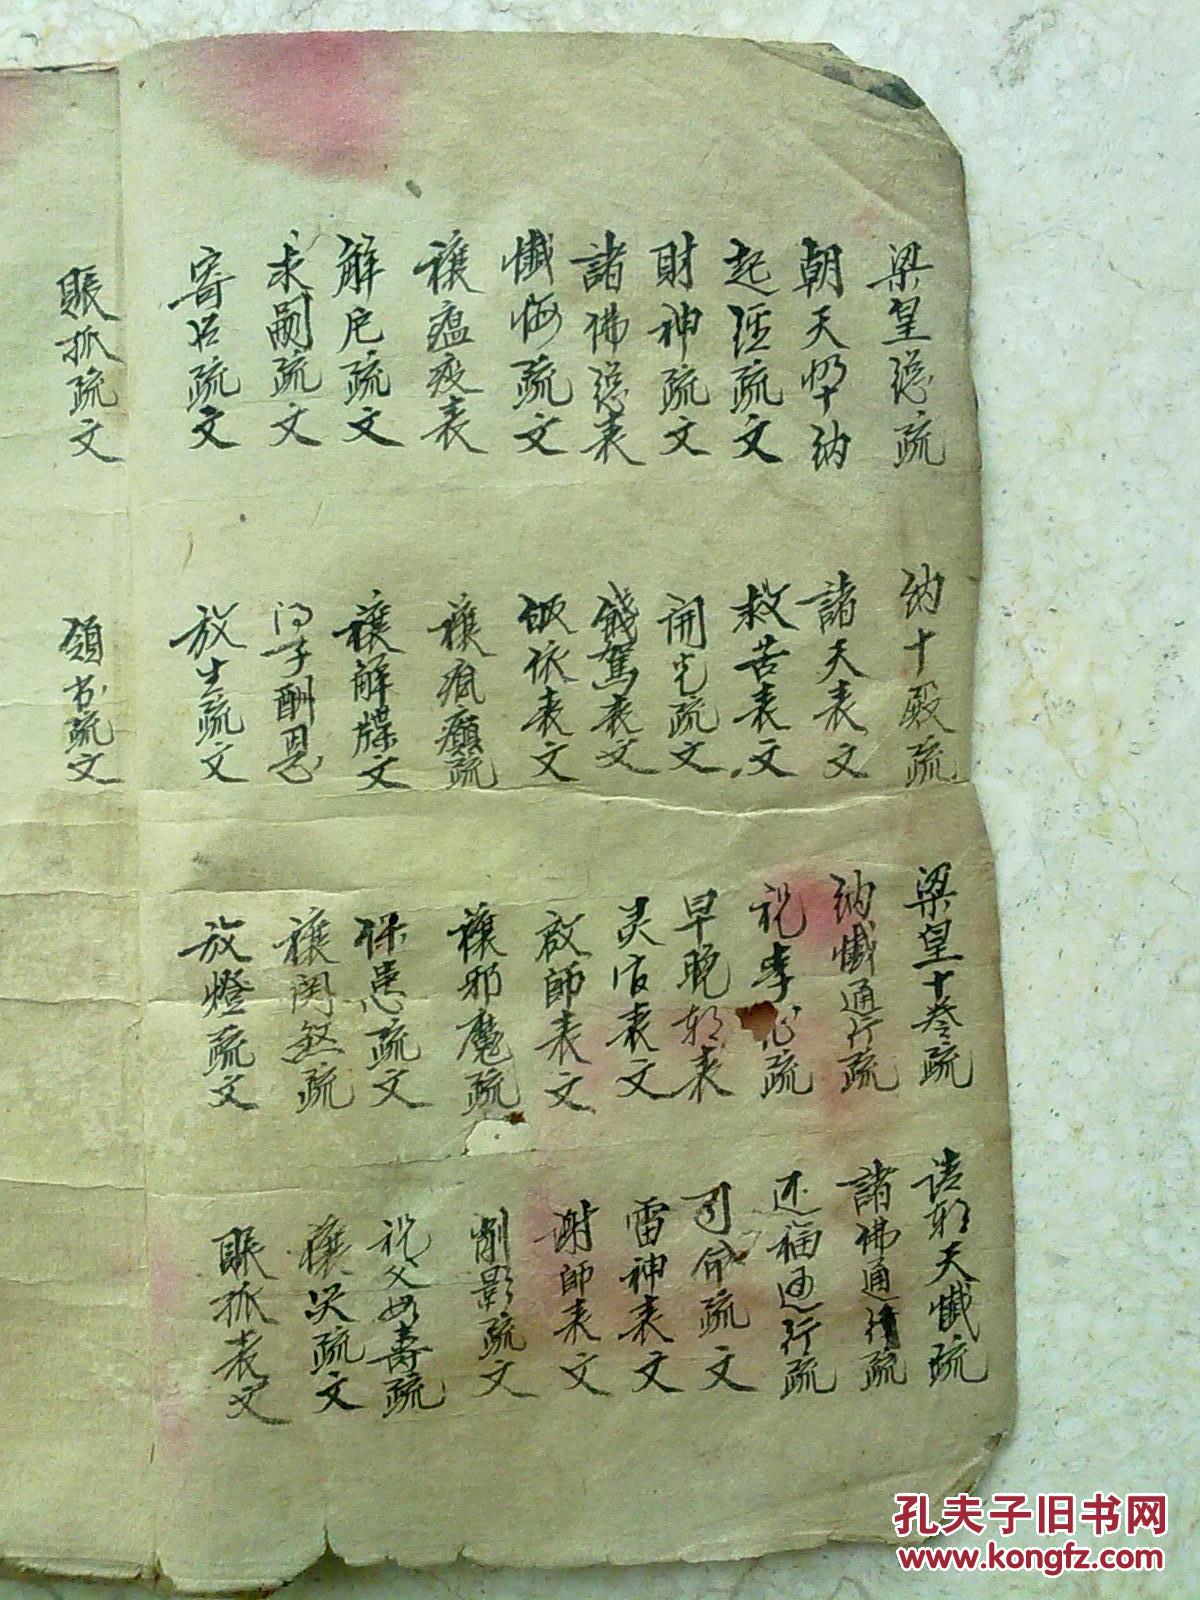 梁皇總疏 纳十殿疏 梁皇十叁疏 诰朝天懺疏
朝天 纳 諸天表文 纳懺通行疏 諸佛通行疏
起經疏文 救苦表文 祝孝 疏 还福通行疏
財神疏文 開光疏文 早晚朝表 司命疏文
諸佛總表 餞駕表文 灵官表文 雷神表文
懺悔疏文 皈依表文 啟師表文 謝師表文
禳瘟疫表 禳瘋癲疏 禳邪魔疏 削影疏文
解厄疏文 禳解牒文 保患疏文 祝父母壽疏
求嗣疏文 子酬恩 禳関煞疏 禳 疏文
寄名疏文 放生疏文 放燈疏文 賑孤表文
賑孤疏文 領书疏文
孔夫子旧书网
www.kongfz.com